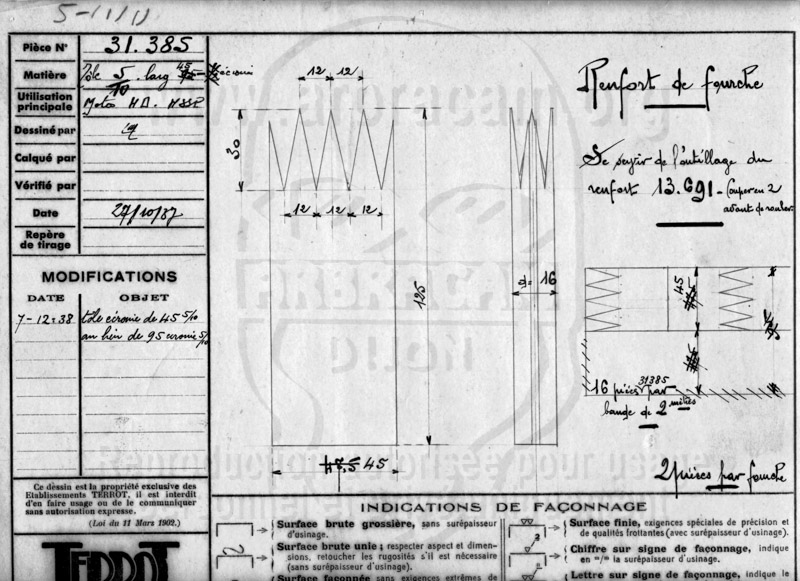 5-11/11
Pièce N° 31.385
Matière Tôle 5/10 larg 45
Utilisation principale Motos HD. HSSP
Dessiné par
Calqué par
Vérifié par
Date 27/10/37
Repère de tirage
MODIFICATIONS
DATE OBJET
7-12-38 tôle écrouie de 45 5/10
au lieu de 95 écrouie 5/10
Ce dessin est la propriété exclusive des
Etablissements TERROT, il est interdit
d'en faire usage ou de le communiquer
sans autorisation expresse.
(Loi du 11 Mars 1902.)
TERROT
12 12
30
12 12 12
125
d= 16
45
Renfort de fourche
Se servir de l'outillage du
renfort 13.691 - Couper en 2
avant de rouler
45
16 pièces 31385 par
bande de 2 mètres
2 pièces par fourche
INDICATIONS DE FAÇONNAGE
Surface brute grossière, sans surépaisseur
d'usinage.
Surface brute unie; respecter aspect et dimen-
sions, retoucher les rugosités s'il est nécessaire
(sans surépaisseur d'usinage).
Surface façonnée sans exigences extrêmes de
Surface finie, exigences spéciales de précision et
de qualités frottantes (avec surépaisseur d'usinage).
Chiffre sur signe de façonnage, indique
en m/m la surépaisseur d'usinage.
Lettre sur signe de façonnage, indique le
www.araracam.org
ARBRACAM
Dijon
Reproduction autorisée pour usage
personnel et